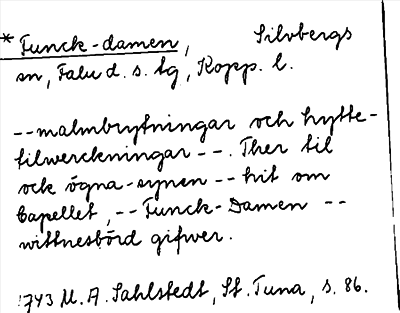 * Funck-damen, Silvbergs
sn, Falu d. s. tg, Kopp. l.
--malmbrytningar och hytte-
tilwerckningar--. Ther til
ock ögna-synen -- hit om
Capellet, -- Funck-Damen --
wittnesbörd gifwer.
1743 M. A. Sahlstedt, St. Tuna, s. 86.